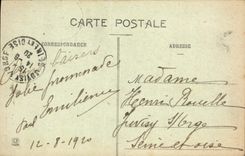 CARTE POSTALE
CORRESPONDANCE
ADRESSE
Baisers
Jolie promenade
Madame
Henri Rouelle
Juvisy s/orge
Seine et oise
12-8-1920